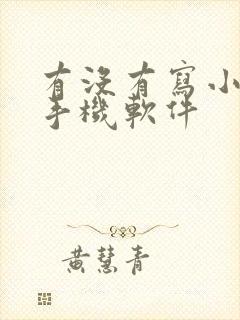 有没有寫小
手機軟件
黄慧青